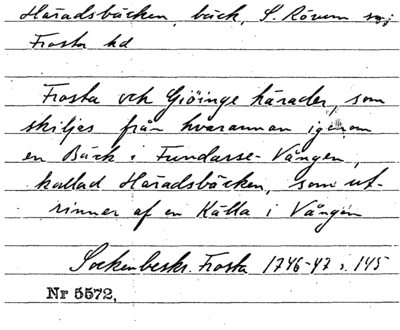 Häradsbäcken, bäck, S. Rörum sn;
Frosta hd
Frosta och Giöinge härader, som
skiljas från hvarannan igenom
en Bäck i Fundasse-Vången,
kallad Häradsbäcken, som ut-
rinner af en Källa i Vången
Sockenbeskr. Frosta 1746-47 s. 145
Nr 5572,